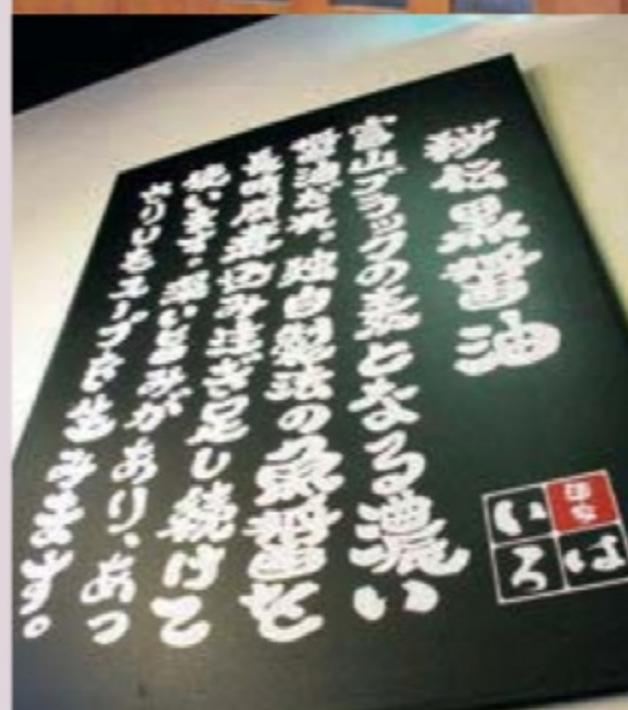 秘伝黒醤油
富山ブラックの素となる濃い
醤油だれ。独自製法の魚醤を
長時間煮込み注ぎ足し続けて
使います。深い旨みがあり、あっ
さりしたスープを生みます。
麺家
いろは